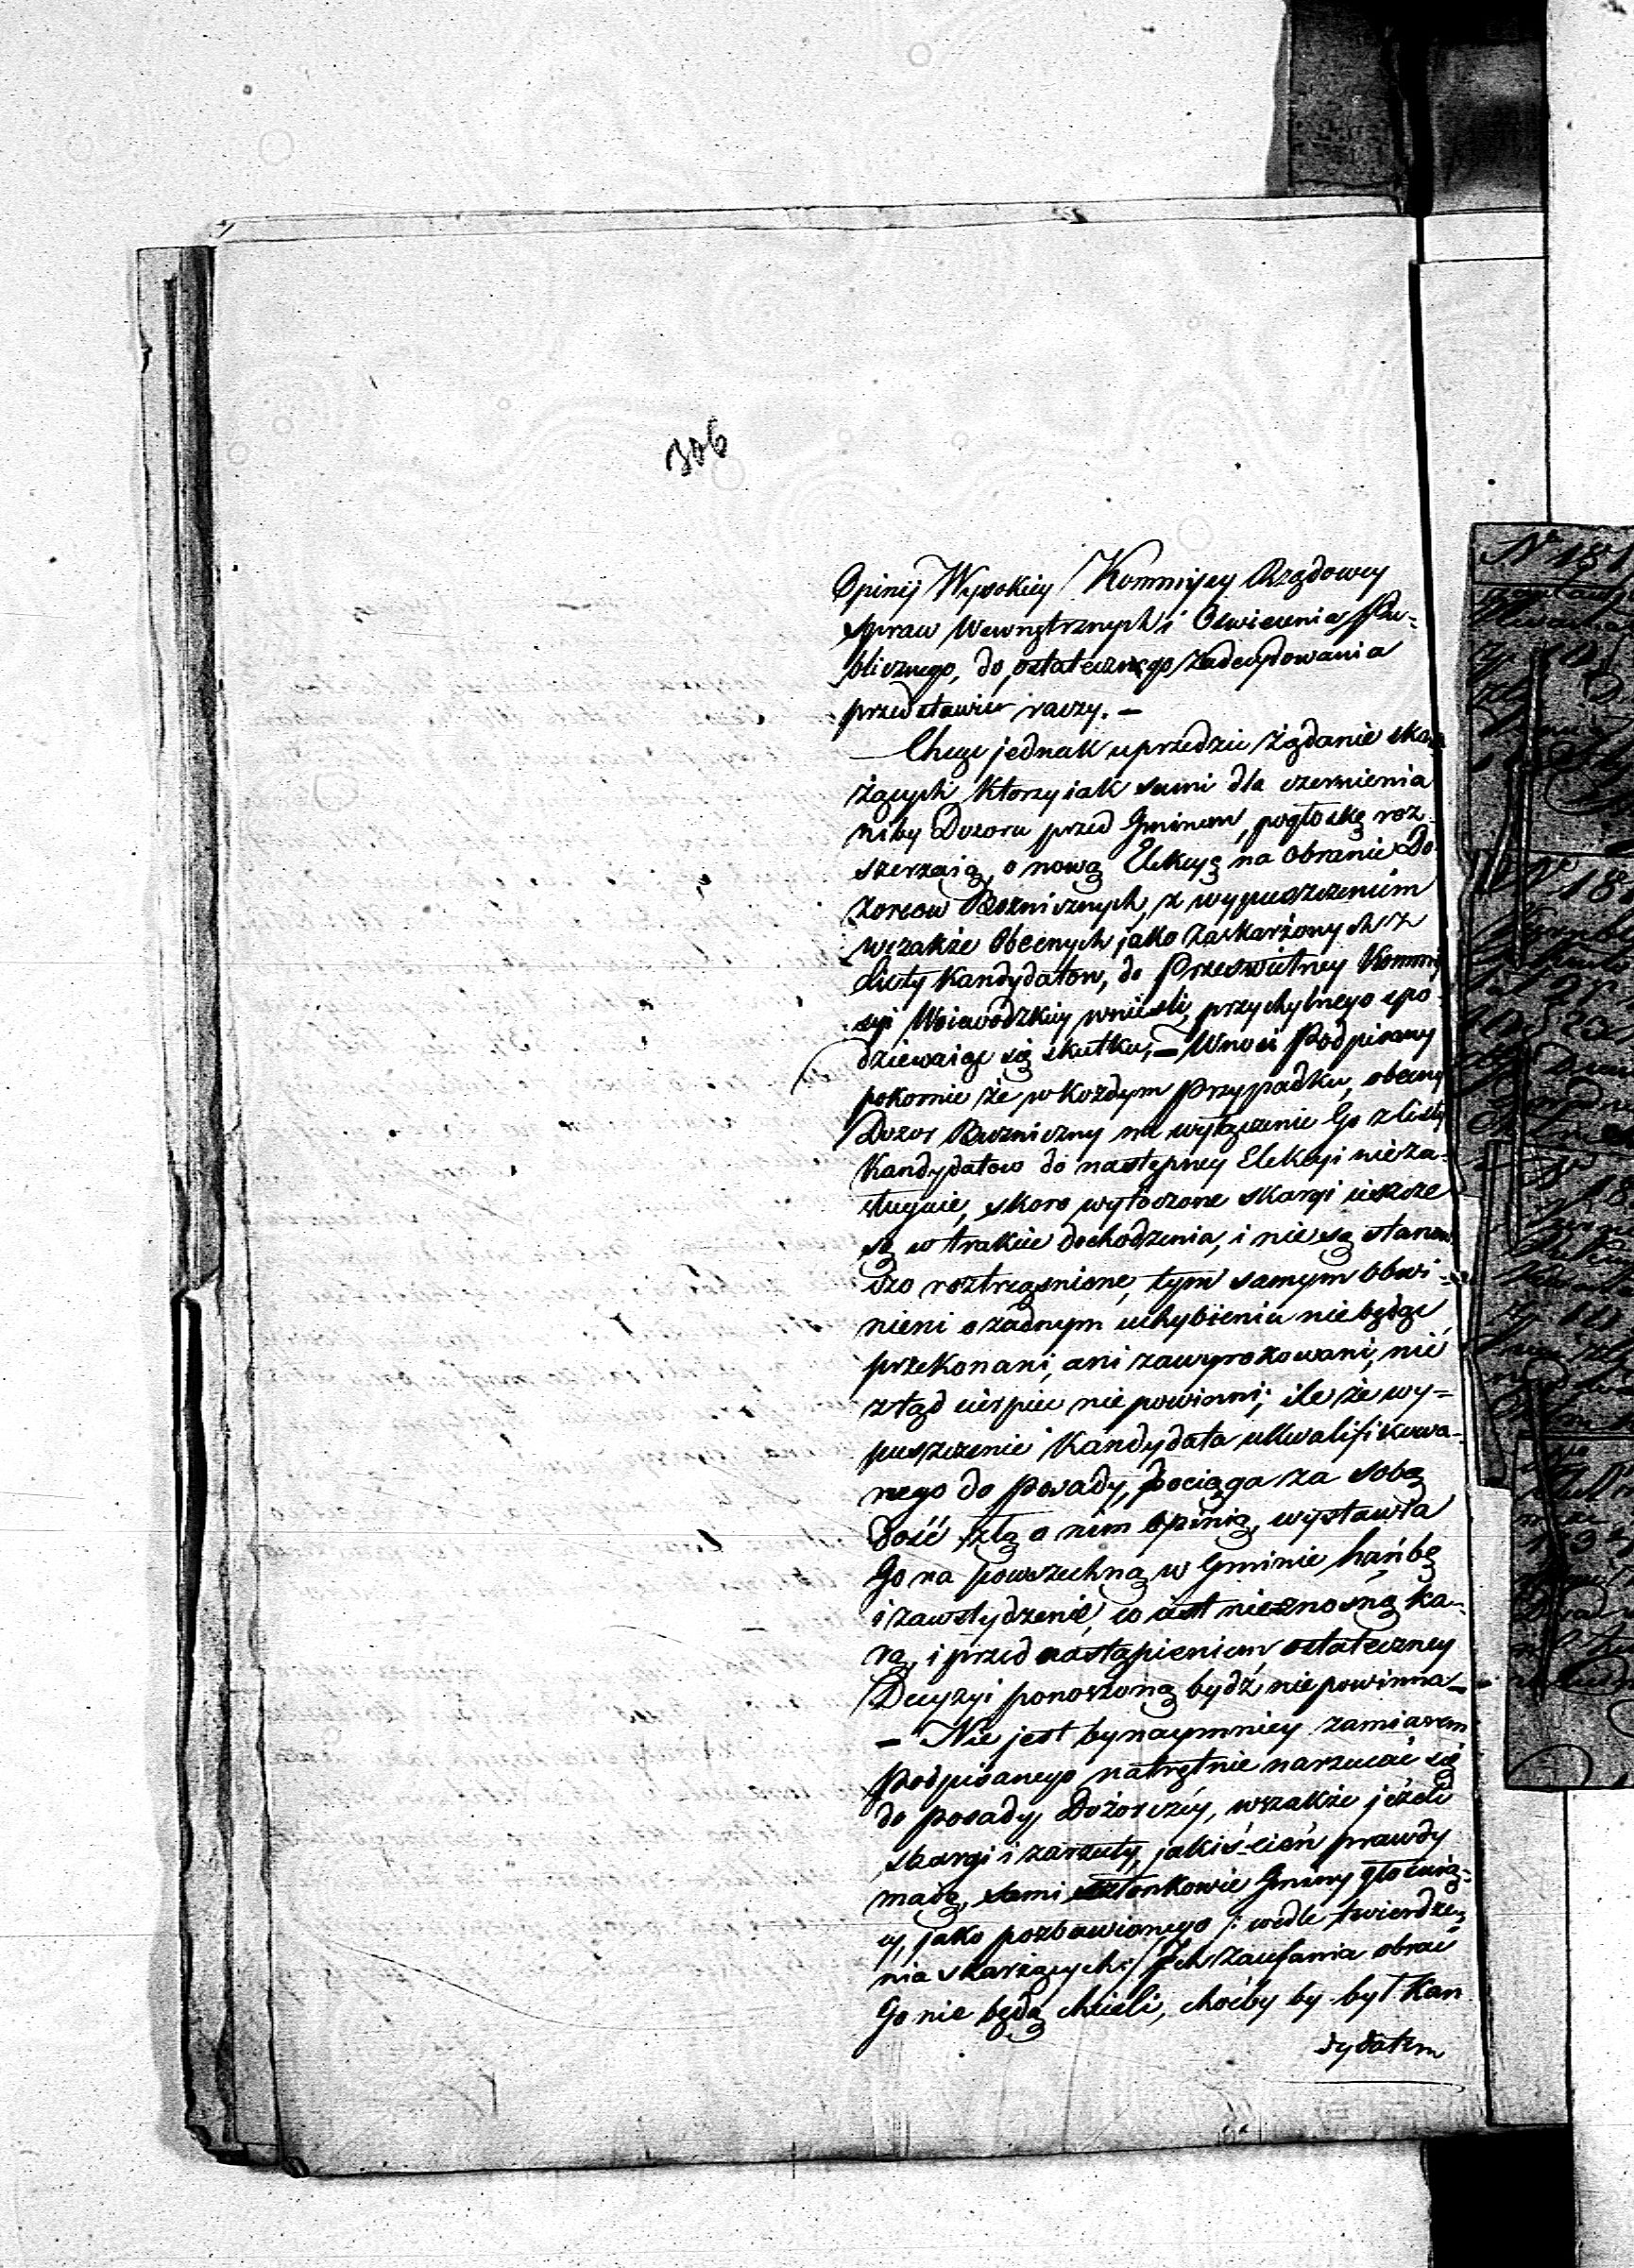 306
Opinij Wysokiey Kommissyi Rządowey
Spraw Wewnętrznych i Oswiecenia Pu-
blicznego, do ostatecznego zadecydowania
przedstawić raczy. —
Chcąc jednak uprzedzic żądanie ska-
żących którzy iak sami dla czernienia
niby Dozoru przed Gminem, pogłoskę roz-
szerzaią, o nową Elekcyą na obranie Do-
zorcow Bozniczych, z wypuszczeniem
wszakże Obecnych jako zaskarżonych z
Listy Kandydatow, do Prześwietney Kommis-
syi Woiewodzkiey wnieśli, przychylnego spo-
dziewaiąc się skutku, — Wnosi Podpisany
pokornie że w każdym przypadku, obecny
Dozor Bozniczny na wyłączenie Go z Listy
Kandydatow do następney Elekcyi nieza-
sługuie, skoro wytoczone skargi ieszcze
są w trakcie dochodzenia, i nie są stanow-
czo roztrząśnione, tym samym Obwi-
nieni o żadnym uchybieniu nie będąc
przekonani, ani zawyrokowani, nić
ztąd cierpiec nie powinni, ile że wy=
puszczenie Kandydata ukwalifikowa-
nego do posady, pociąga za sobą
dość złą o nim opinią, wystawia
Go na powszechną w Gminie hańbę
i zawstydzenie, co iest nieznośną ka-
rą, i przed nastąpieniem ostateczney
Decyzyi ponoszoną bydź nie powinna —
— Nie jest bynaymniey zamiarem
Podpisanego natrętnie narzucać się
do posady Dozorczéy, wszakże jeżeli
skargi i zarzuty, jakiś cień prawdy
maią, sami członkowie Gminy głosuią-
cy, jako pozbawionego /: wedle twierdze-
nia skarżących :/ Ich zaufania obrać
Go nie będą chcieli, choćby by był Kan
dydatem